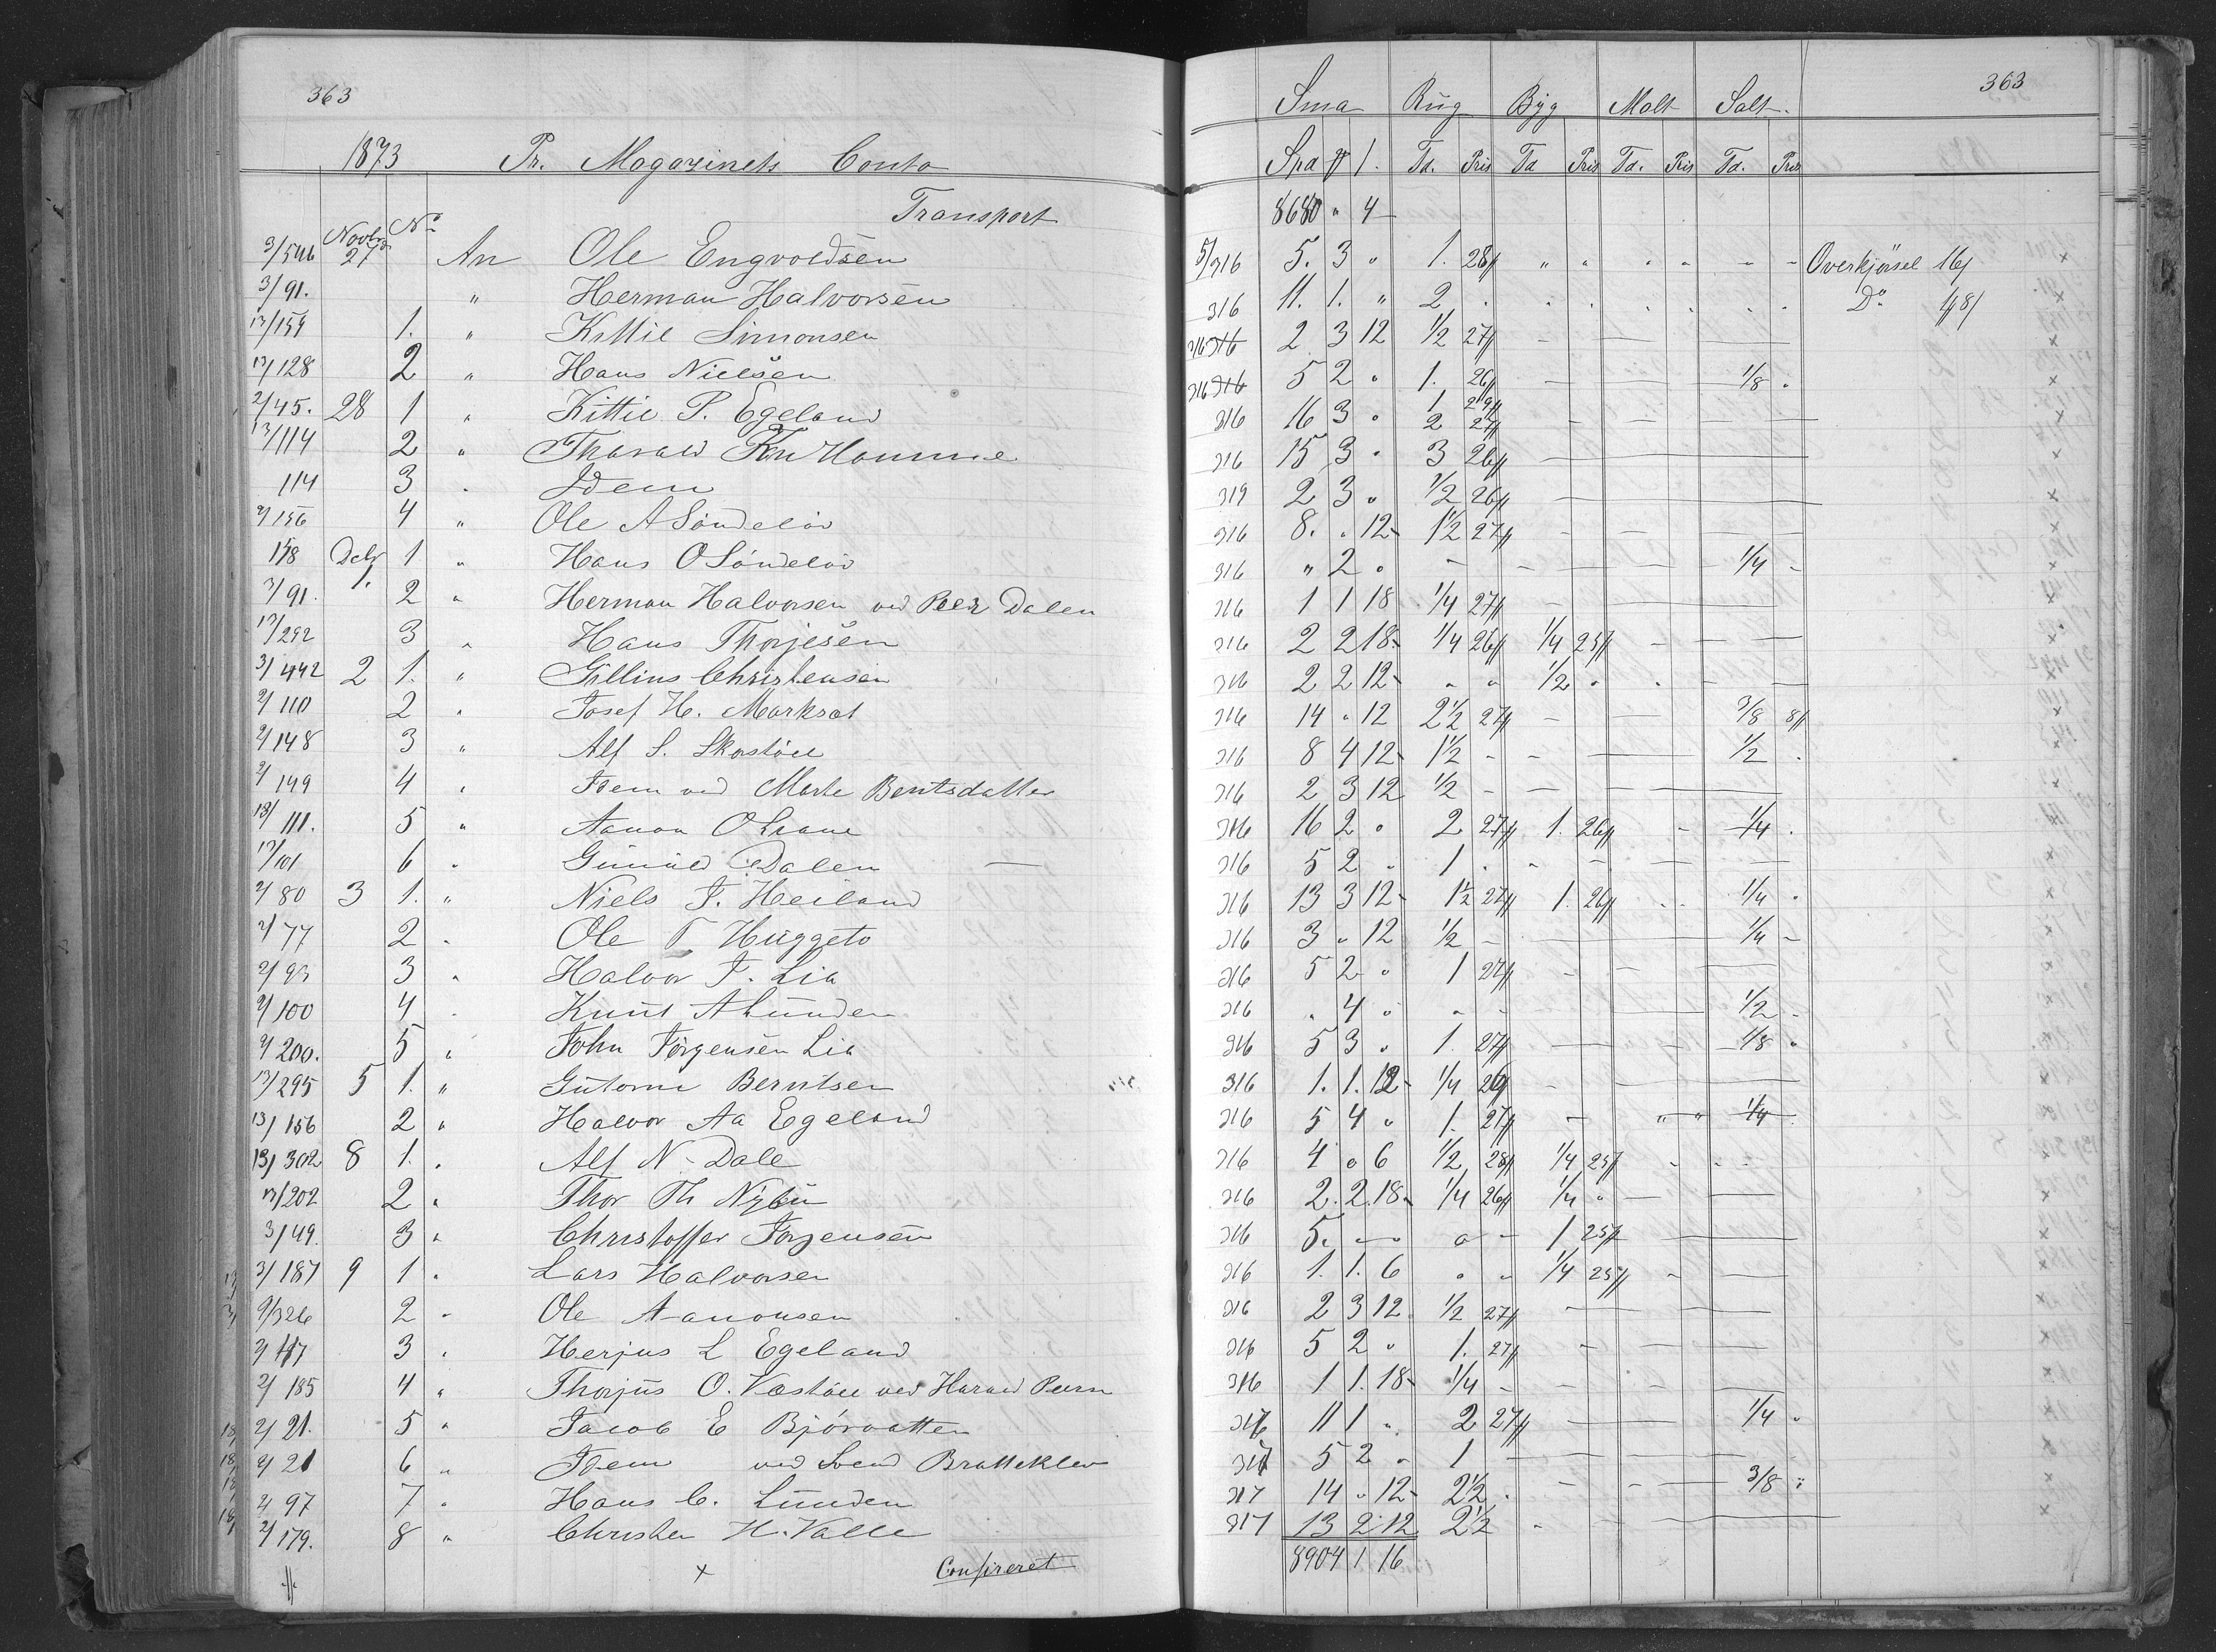 363
1873 Pr. Magazinets Conto
Transport
Novbr No
3/546 27 An Ole Engvoldsen
3/91. " Herman Halvorsen
13/154 1. " Kittil Simonsen
13/128 2 " Hans Nielsen
2/45. 28 1 " Kittil P. Egeland
13/114 2 " Tharald Kn Homme
114 3 " Idem
2/156 4 " Ole A Söndelöv
Debr 1 1 " Hans O Söndelöv
3/91. 2 " Herman Halvorsen ved Peer Dalen
13/292 3 " Hans Thorjesen
3/442 2 1. " Gillius Christensen
2/110 2 " Josef H.
2/148 3 " Alf S.
2/149 4 " Idem ved Marte Berntsdatter
13/111. 5 " Aanon O
13/101 6 " Gunuld Dalen
2/80 3 1. " Niels J. Heiland
2/77 2 " Ole T Huggeto
2/93 3 " Halvor J. Lia
2/100 4 " Knut A Lunden
2/200. 5 " John Jörgensen Lia
13/295 5 1. " Gutorm Berntsen
13/156 2 " Halvor Aa Egeland
13/302 8 1. " Alf N. Dale
13/202 2 " Thor Th Nybu
3/49. 3 " Christoffer Jörgensen
3/187 9 1 " Lars Halvorsen
9/326 2 " Ole Aanonsen
2/117 3 " Herjus L Egeland
2/185 4 " Thorjus O. ved Harald
2/21. 5 " Jacob E Björvatten
2/21 6 " Idem ved Svend Bratteklev
2/97 7 " Hans C. Lunden
2/179. 8 " Christen H. Valle
x Confereret
363
Sma Rug Byg Malt Salt
Spd # /. Td. Pris Td Pris Td. Pris Td. Pris
8680 " 4
5/316 5. 3 " 1. 28# Overkjörsel 16/
316 11. 1. " 2 Do 48/
316 2 3 12 1/2 27#
316 5 2 " 1. 26# 1/8
316 16 3 " 1 29# 2 27#
316 15 3 " 3 26#
319 2 3 " 1/2 26#
316 8. " 12 1 1/2 27#
316 " 2 " 1/4
316 1 1 18 1/4 27#
316 2 2 18 1/4 26# 1/4 25#
316 2 2 12 " " 1/2
316 14 " 12 2 1/2 27# 3/8 8#
316 8 4 12 1 1/2 1/2
316 2 3 12 1/2
316 16 2 " 2 27# 1. 26# 1/4
316 5 2 " 1
316 13 3 12 1 1/2 27# 1. 26# 1/4
316 3 " 12 1/2 1/4
316 5 2 " 1 27#
316 " 4 " 1/2
316 5 3 " 1. 27# 1/8
316 1. 1. 12 1/4 26
316 5 4 " 1. 27# 1/4
316 4 " 6 1/2 28# 1/4 25#
316 2. 2. 18 1/4 26# 1/4
316 5. 1 25#
316 1. 1. 6 " " 1/4 25#
316 2 3 12 1/2 27#
316 5 2 " 1. 27#
316 1 1. 18 1/4
317 11 1 " 2 27# 1/4
317 5 2 " 1
317 14 " 12 2 1/2 3/8
317 13 2 12 2 1/2
8904 1 16